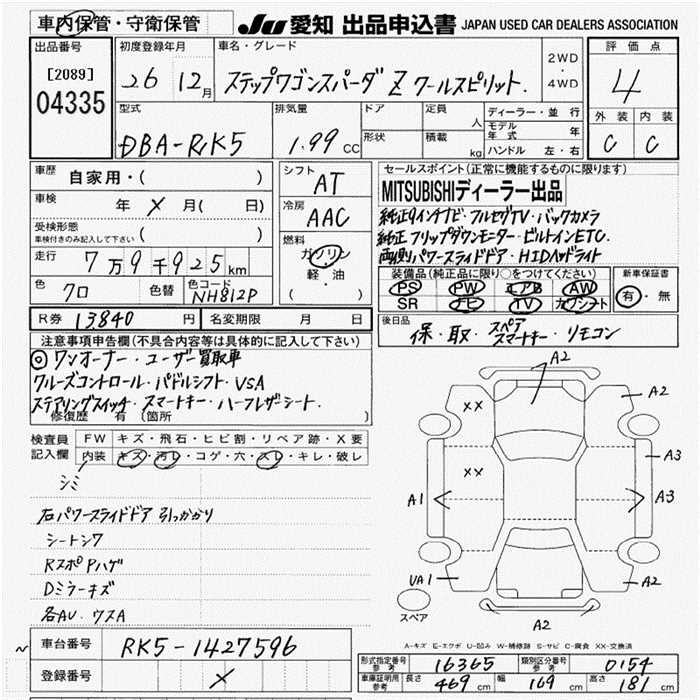 車内保管・守衛保管
JU 愛知 出品申込書 JAPAN USED CAR DEALERS ASSOCIATION
出品番号 初度登録年月 車名・グレード 2WD・4WD 評価点
[2089]
04335
26 12月 ステップワゴンスパーダ Z クールスピリット. 4
型式 排気量 ドア 定員 人 ディーラー・並行 外装 内装
DBA-RK5 1.99 CC 形状 積載 kg モデル年式 年 C C
ハンドル 左・右
車歴 自家用・( )
シフト AT
車検 年 メ 月( 日)
冷房 AAC
受検形態
車検付きのみ記入して下さい ( )
走行 7万9千925km
燃料 ガソリン 軽・油 ( )
色 クロ 色替 色コード NH812P
R券 13,840 円 名変期限 月 日
セールスポイント(正常に機能するものに限ります)
MITSUBISHIディーラー出品
純正9インチナビ・フルセグTV・バックカメラ
純正フリップダウンモーター・ビルトインETC.
両側パワースライドドア・HIDヘッドライト
装備品(純正品に限り○をつけてください) 新車保証書
PS PW エアB AW 有・無
SR ナビ TV カワシート
後日品 保・取・スペアスマートキー・リモコン
注意事項申告欄(不具合内容等は具体的に記入して下さい)
◎ワンオーナー・ユーザー買取車
クルーズコントロール・パドルシフト・VSA
ステアリングスイッチ・スマートキー・ハーフレザーシート・
修復歴 有 (箇所 )
検査員記入欄 FW キズ・飛石・ヒビ割・リペア跡・X要
内装 キズ・汚レ・コゲ・穴・スレ・キレ・破レ
シミ
右パワースライドドア 引っかかり
シートシワ
RスポPハゲ
Dミラーキズ
各AU・ウスA
A2
XX
A2
XX
A3
A1
A3
UA1
A2
スペア
A2
A-キズ E-エクボ U-凹み W-補修跡 S-サビ C-腐食 XX-交換済
車台番号 RK5-1427596
登録番号 メ
形式指定番号参考 16365 類別区分番号参考 0154
車庫証明用参考 長さ 469 cm 幅 169 cm 高さ 181 cm